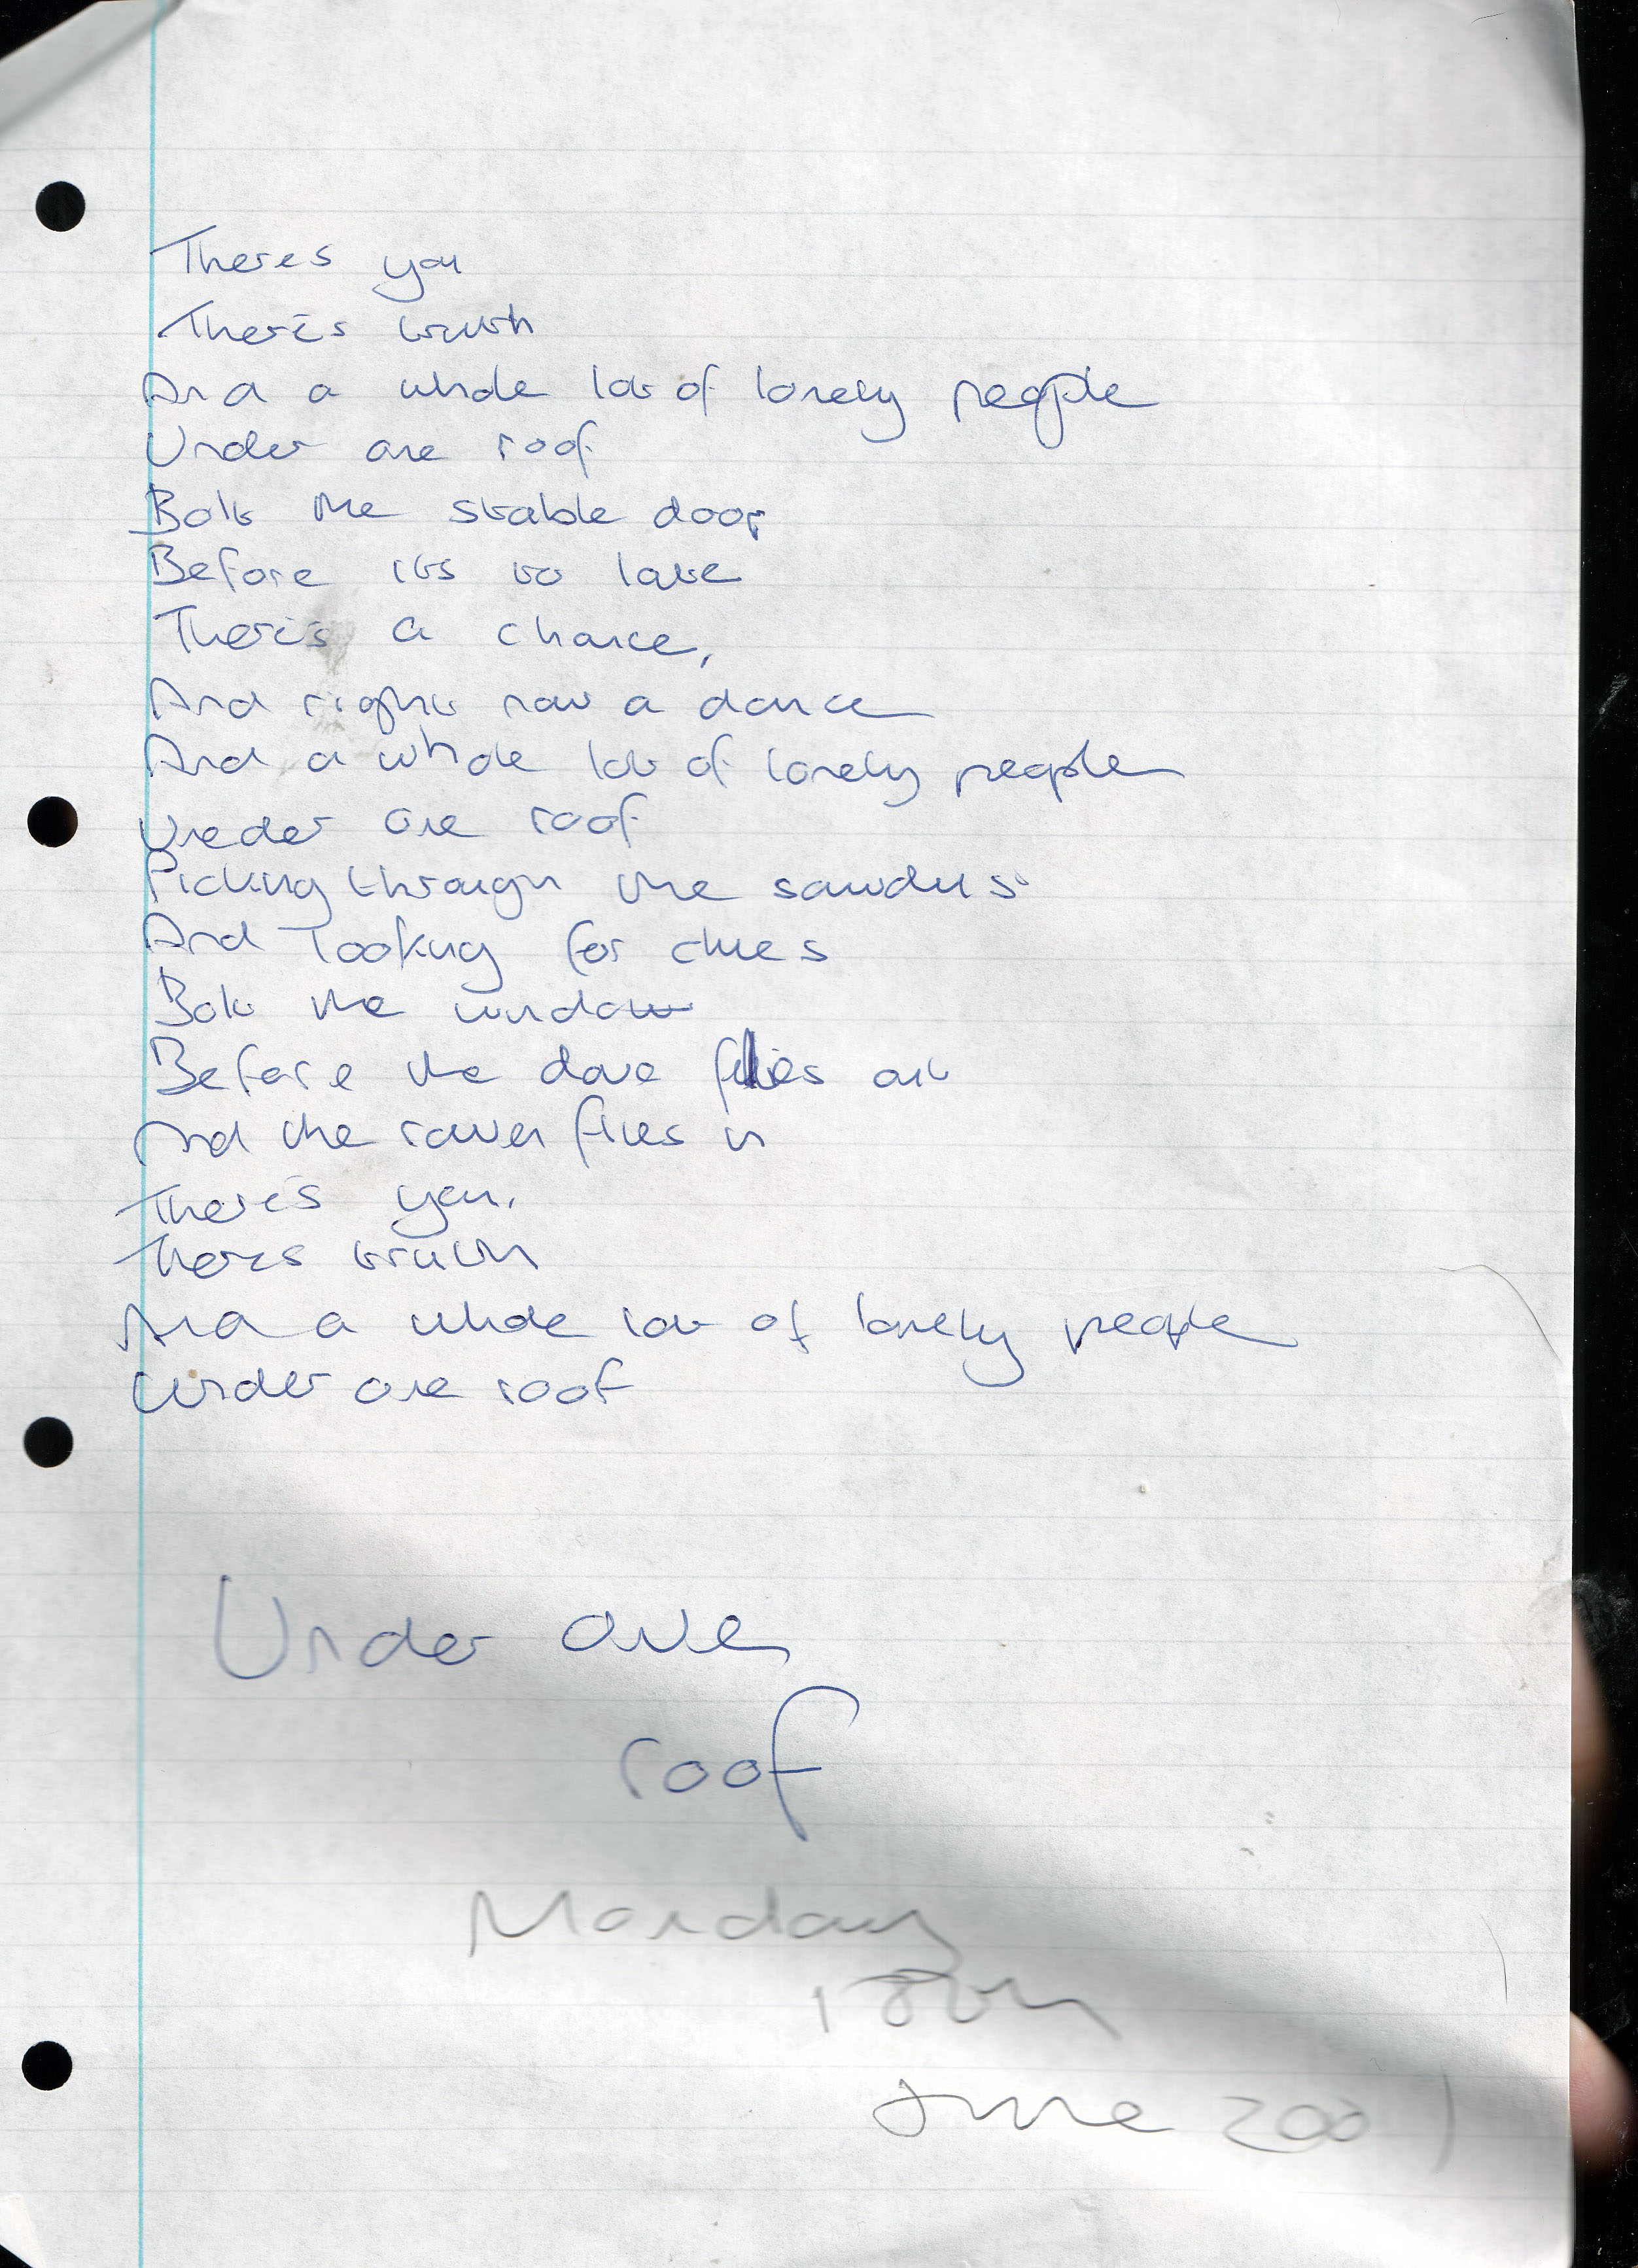 Theres you
There's truth
And a whole lot of lonely people
Under one roof
Bolt the stable door
Before its to late
There's a chance,
And right now a dance
And a whole lot of lonely people
Under one roof
Picking through the sawdust
And looking for clues
Bolt the window
Before the dove flies out
And the raven flies in
There's you.
Theres truth
And a whole lot of lonely people
Under one roof
Under one
roof
Monday
18th
June 2001